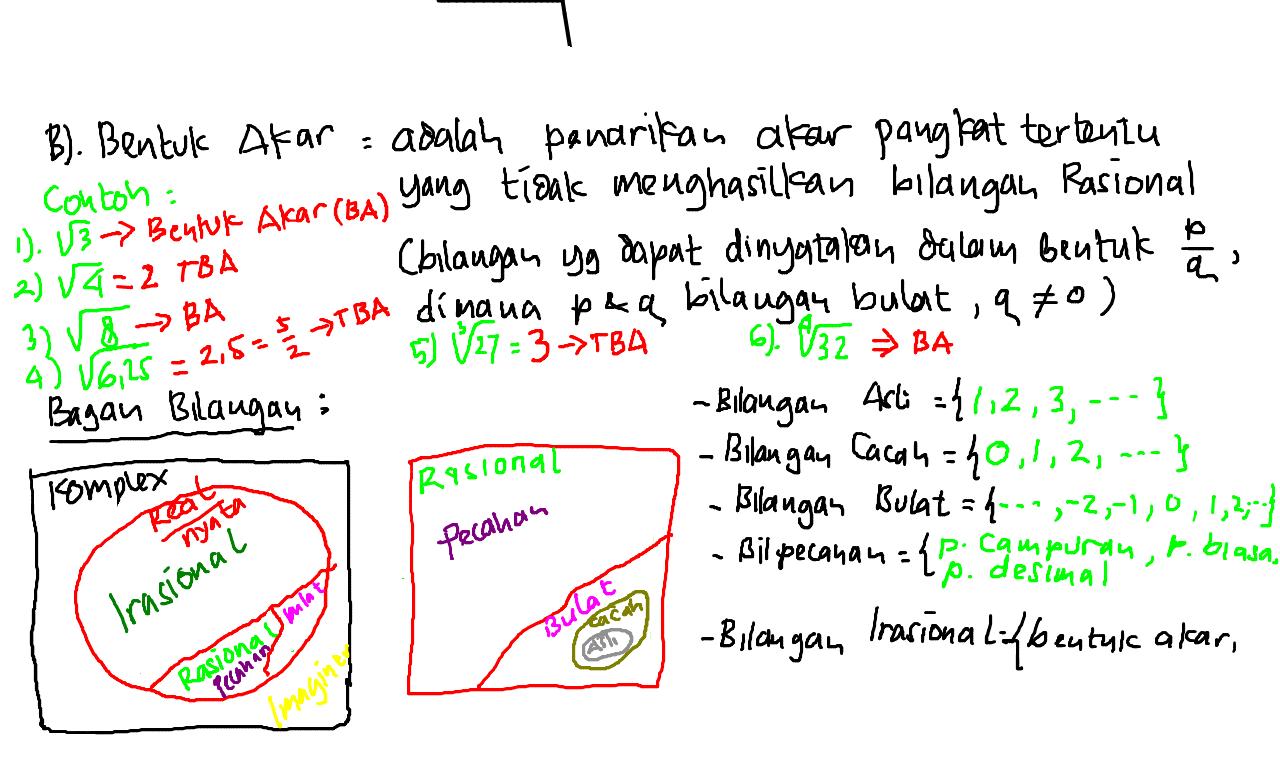 B). Bentuk Akar = adalah penarikan akar pangkat tertentu
yang tidak menghasilkan bilangan Rasional
(bilangan yg dapat dinyatakan dalam bentuk p/q,
dimana p & q bilangan bulat, q ≠ 0)
Contoh :
1). √3 → Bentuk Akar (BA)
2) √4 = 2 TBA
3) √8 → BA
4) √6,25 = 2,5 = 5/2 → TBA
5) ³√27 = 3 → TBA
6). ⁴√32 ⇒ BA
Bagan Bilangan :
Komplex
Real
nyata
Irasional
Rasional
Pecahan
bulat
Imaginer
Rasional
Pecahan
Bulat
Cacah
Asli
- Bilangan Asli = {1, 2, 3, ---}
- Bilangan Cacah = {0, 1, 2, ---}
- Bilangan Bulat = {---, -2, -1, 0, 1, 2, ...}
- Bil pecahan = {p. campuran, p. biasa,
p. desimal
- Bilangan Irasional = {bentuk akar,